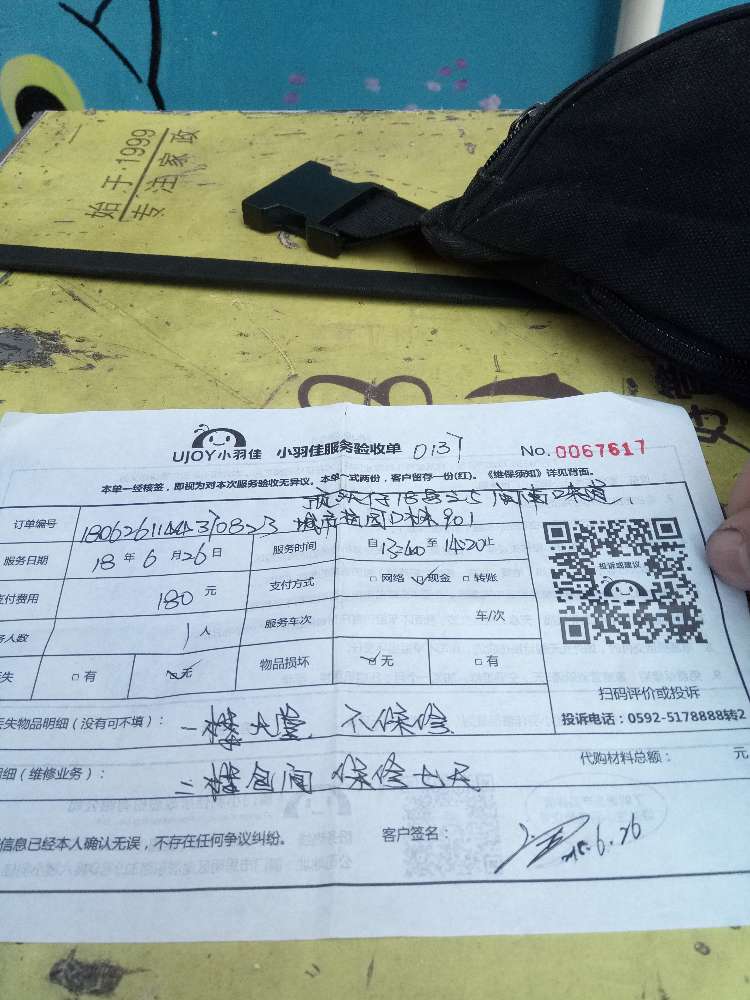 始于·1999
专注家政
UJOY小羽佳 小羽佳服务验收单 0137 No. 0067617
本单一经核签，即视为对本次服务验收无异议。本单一式两份，客户留存一份(红)。《维保须知》详见背面。
订单编号
901
服务日期 18年6月26日 服务时间 自13:40至14:20止
支付费用 180元 支付方式 □网络 ☑现金 □转账
务人数 1人 服务车次 车/次
失 □有 ☑无 物品损坏 ☑无 □有
投诉或建议
扫码评价或投诉
投诉电话：0592-5178888转2
丢失物品明细（没有可不填）： 一楼大堂 不保修
明细（维修业务）： 三楼包间 保修七天 代购材料总额： 元
信息已经本人确认无误，不存在任何争议纠纷。 客户签名： 18.6.26